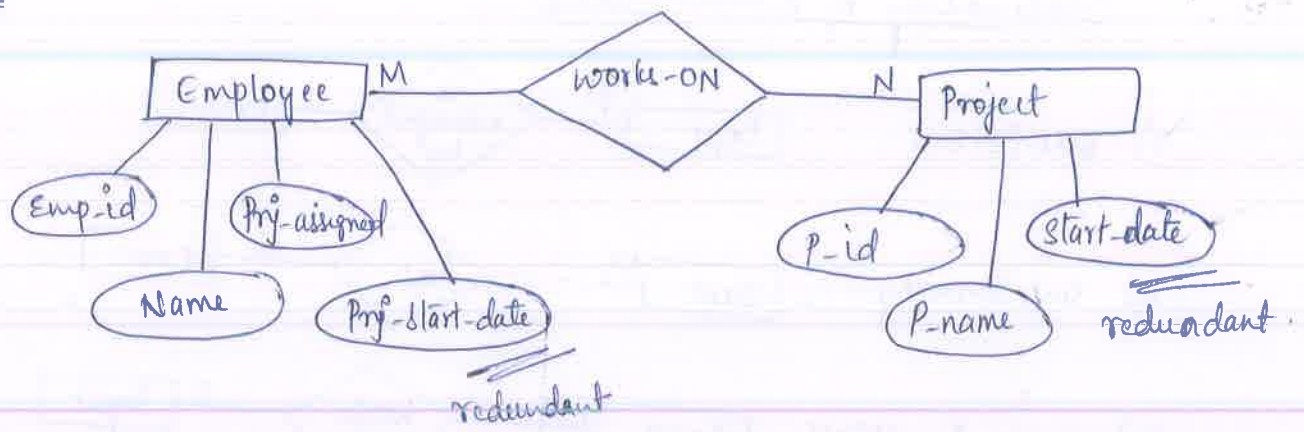 Employee
M
Works-ON
N
Project
Emp-id
Prj-assigned
Name
Prj-start-date
redundant
P-id
Start-date
P-name
redundant.